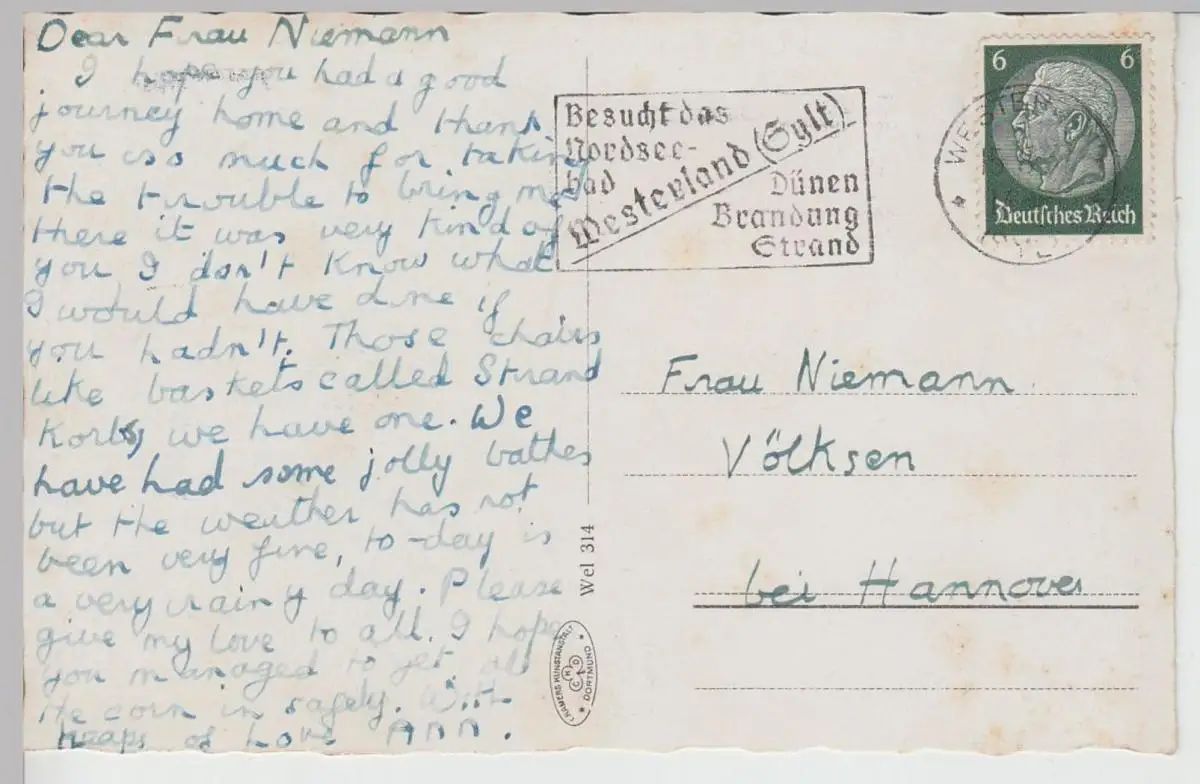 Dear Frau Niemann
I hope you had a good
journey home and thank
you so much for taking
the trouble to bring me
there it was very kind of
you I don't know what
I would have done if
you hadn't. Those chairs
like baskets called Strand
Korbs, we have one. We
have had some jolly bathes
but the weather has not
been very fine, to-day is
a very rainy day. Please
give my love to all. I hope
you managed to get all
the corn in safely. With
heaps of Love Ann.
Besucht das
Nordsee-
bad
Westerland (Sylt)
Dünen
Brandung
Strand
6 6
Deutsches Reich
Frau Niemann
Völksen
bei Hannover
Wel 314
KUNSTANSTALT
DORTMUND